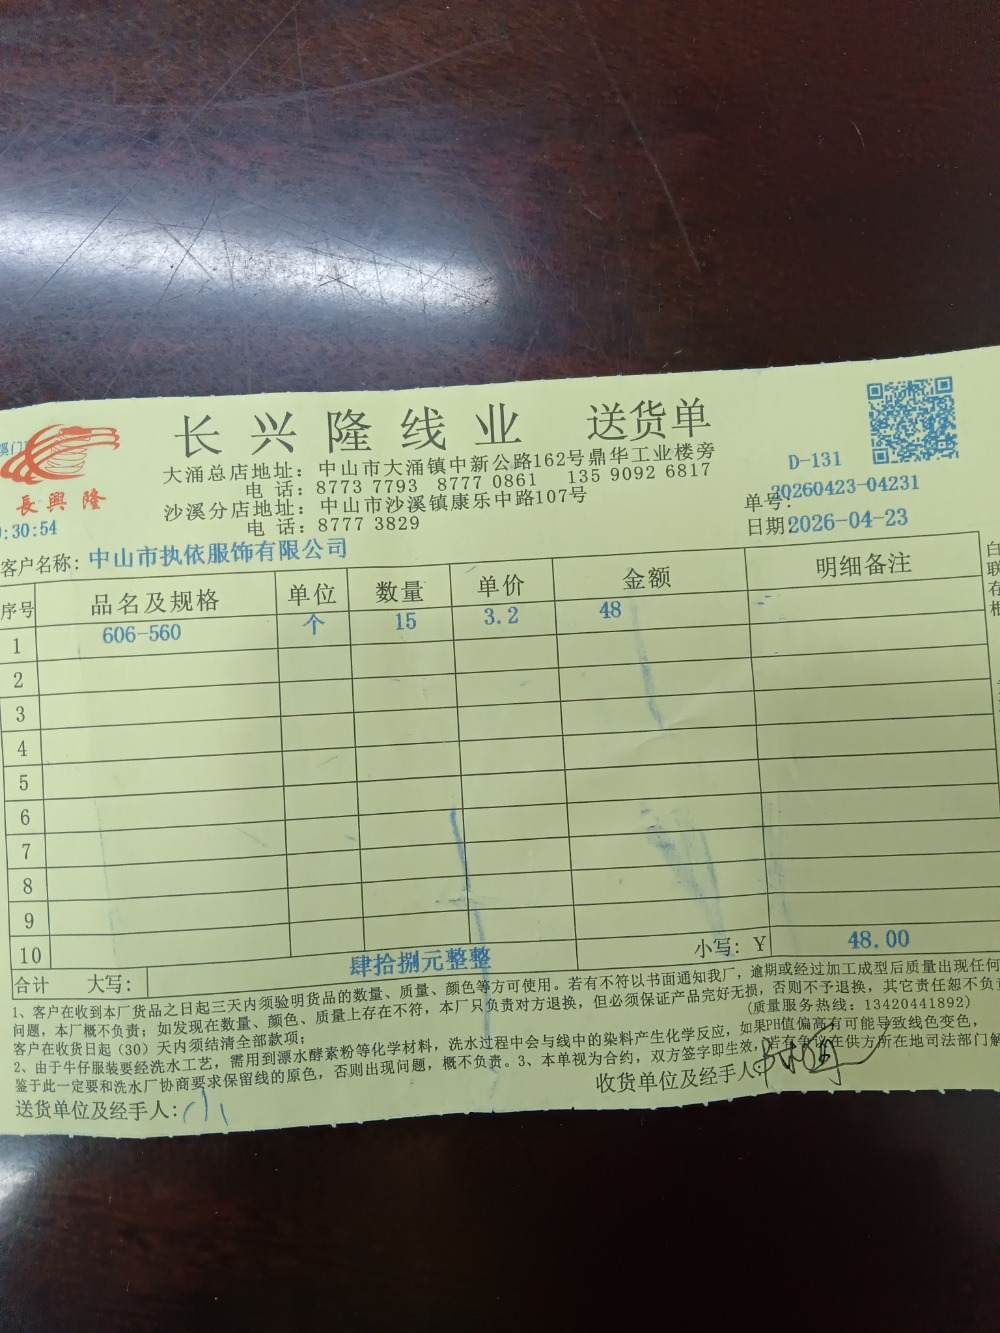 长兴隆线业 送货单
大涌总店地址：中山市大涌镇中新公路162号鼎华工业楼旁
电 话：8773 7793 8777 0861 135 9092 6817
沙溪分店地址：中山市沙溪镇康乐中路107号
电 话：8777 3829
長興隆
:30:54
D-131
单号：20260423-04231
日期：2026-04-23
客户名称：中山市执依服饰有限公司
序号 品名及规格 单位 数量 单价 金额 明细备注
1 606-560 个 15 3.2 48
2
3
4
5
6
7
8
9
10
合计 大写： 肆拾捌元整整 小写：Y 48.00
1、客户在收到本厂货品之日起三天内须验明货品的数量、质量、颜色等方可使用。若有不符以书面通知我厂，逾期或经过加工成型后质量出现任何
问题，本厂概不负责；如发现在数量、颜色、质量上存在不符，本厂只负责对方退换，但必须保证产品完好无损，否则不予退换，其它责任恕不负责
客户在收货日起（30）天内须结清全部款项； (质量服务热线：13420441892)
2、由于牛仔服装要经洗水工艺，需用到漂水酵素粉等化学材料，洗水过程中会与线中的染料产生化学反应，如果PH值偏高有可能导致线色变色，
鉴于此一定要和洗水厂协商要求保留线的原色，否则出现问题，概不负责。3、本单视为合约，双方签字即生效，若有争议在供方所在地司法部门解
送货单位及经手人： 收货单位及经手人
白
联
存
根